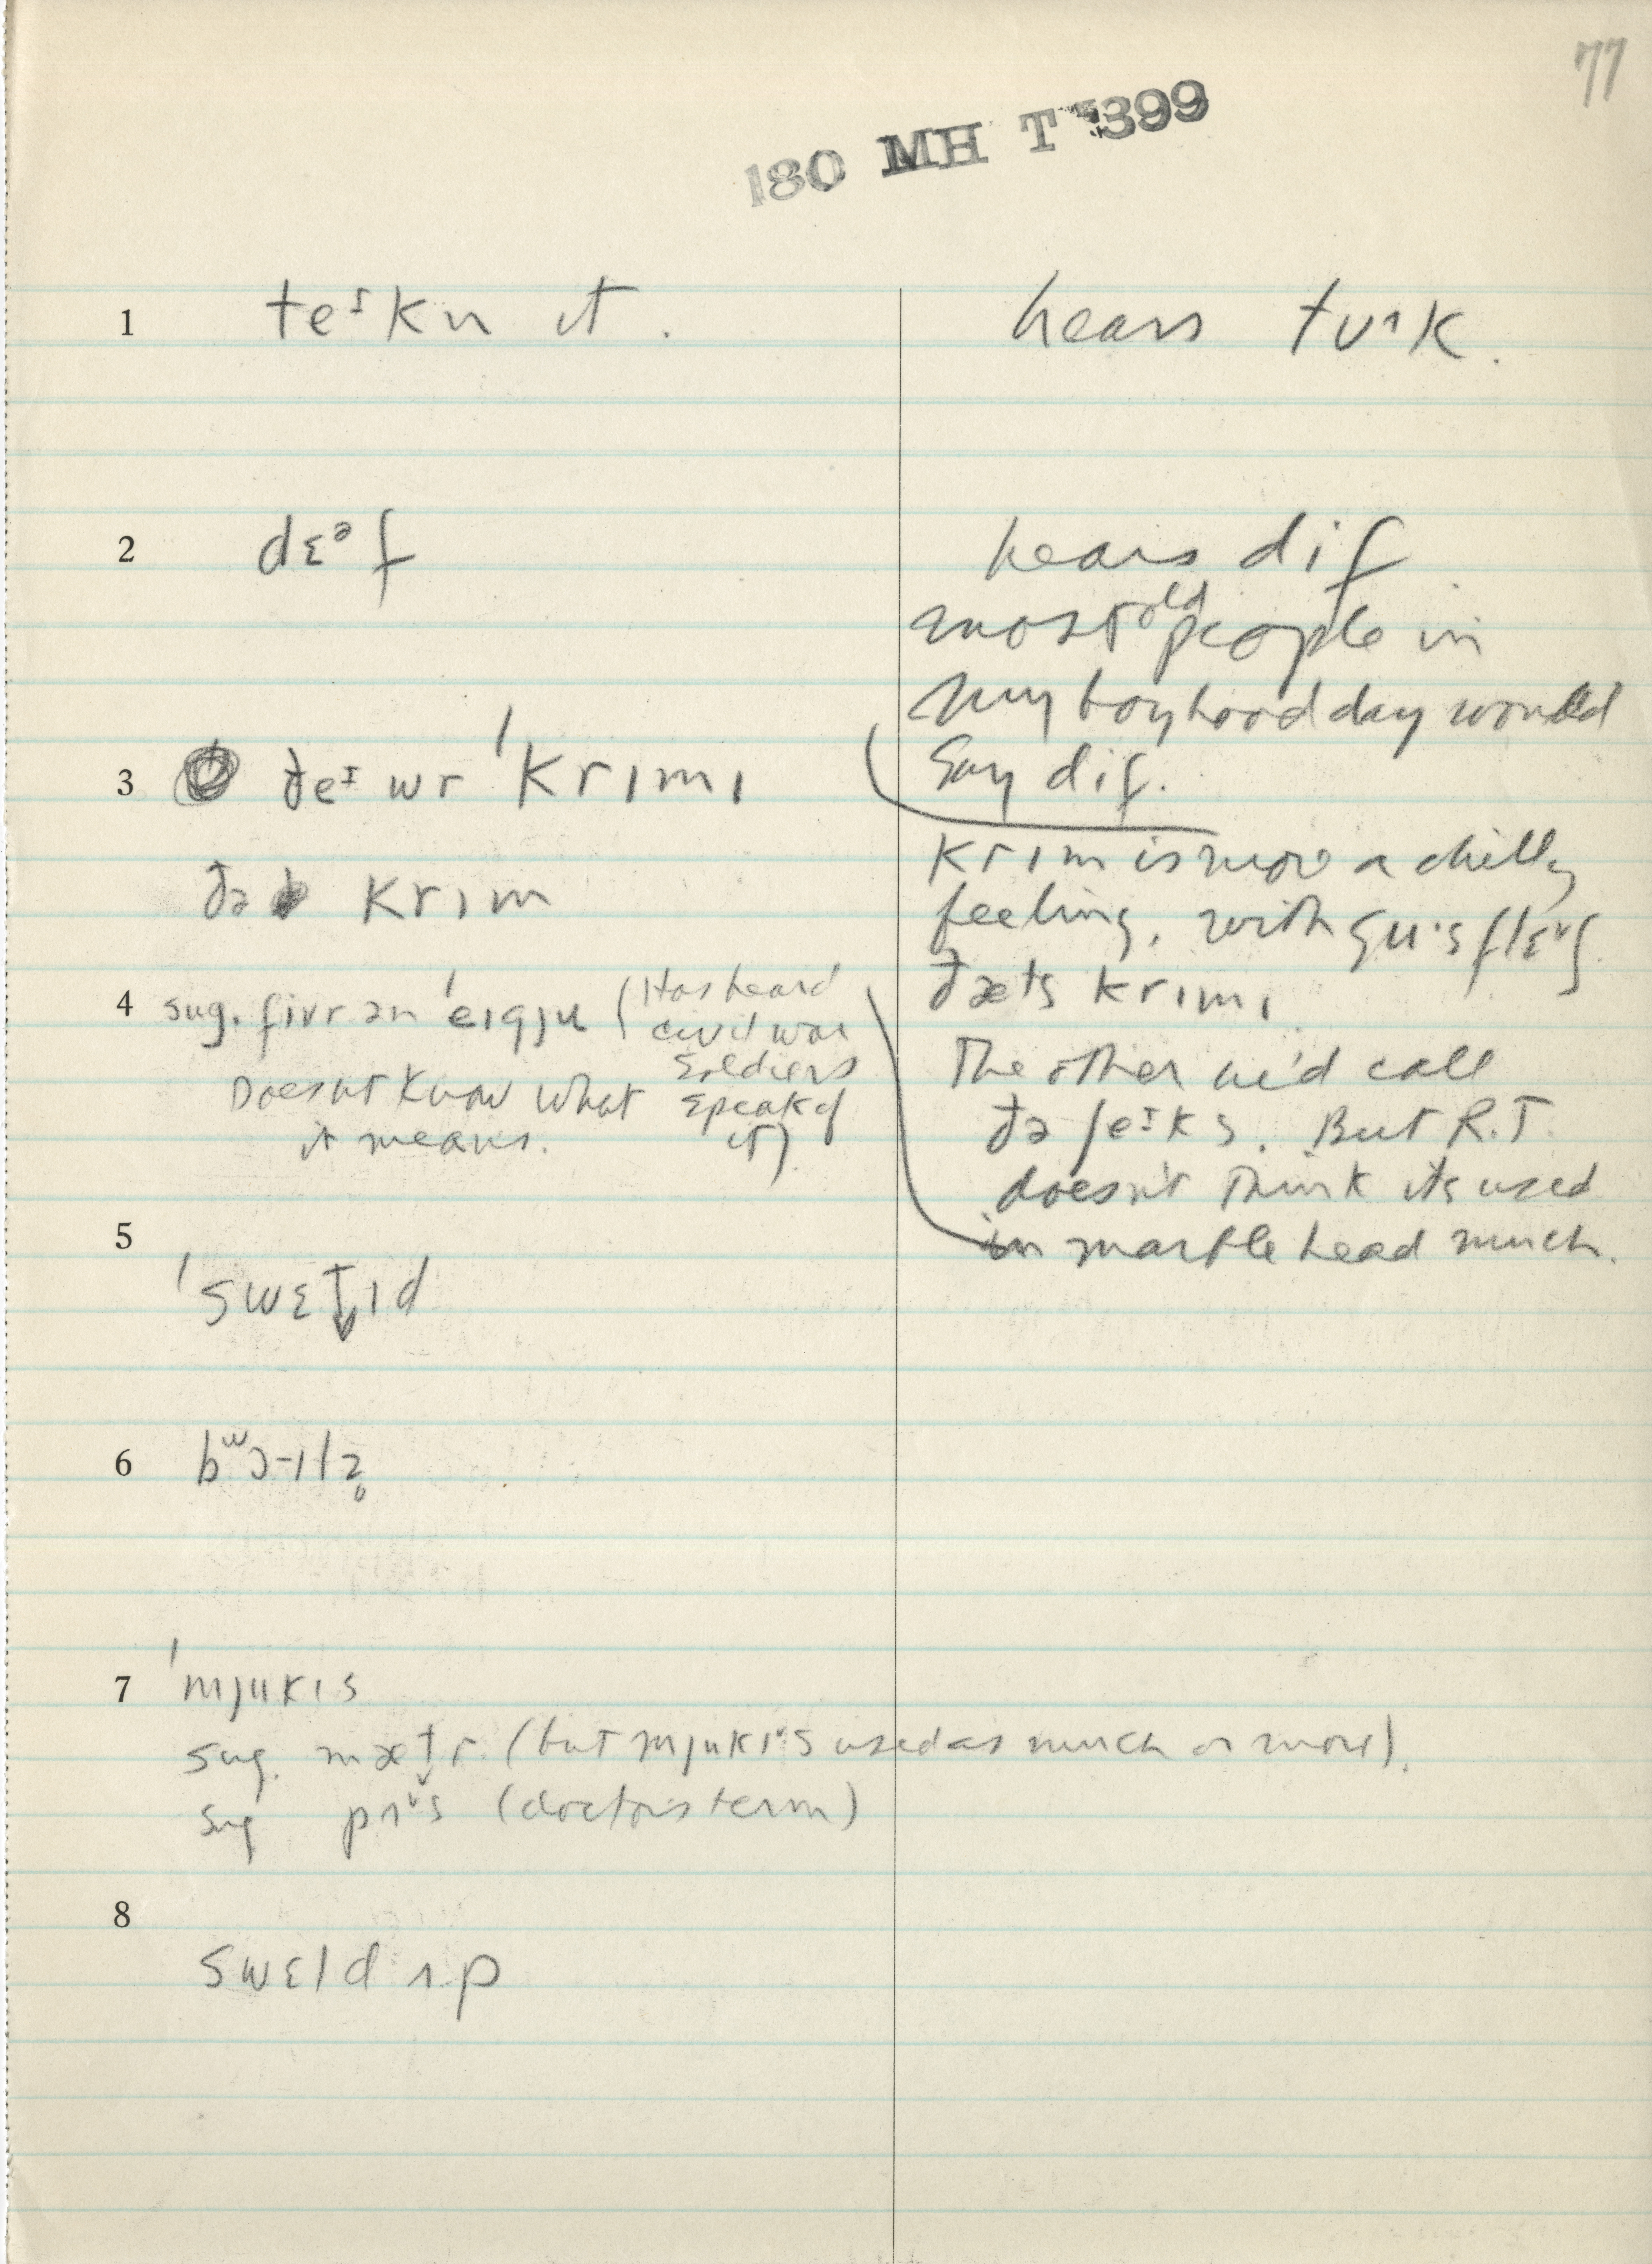 77
180 MH T 399
1 teᶦkn it.
hears tʊˑk.
2 dɛᵊf
hears dif
most old people in
my boyhood day would
say dif.
3 ðeᶦ wr ˈkrɪmɪ
ðə krɪm
krɪm is more a chilly
feeling, with gu·s flɛˇʃ
ðæts krɪmɪ
The other we'd call
ðə ʃeᶦks. But R.T.
doesn't think its used
in marblehead much.
4 sug. fivr ən ˈeɪgju (Has heard
civil war
soldiers
speak of
it).
Doesnt know what
it means.
5 ˈswɛt̬ɪd
6 bʷɔ-ɪlz̥
7 ˈmjukɪs
sug. mæt̬r (but mjukɪˇs used as much or more).
sug pʌˇs (doctor's term)
8 swɛld ʌp